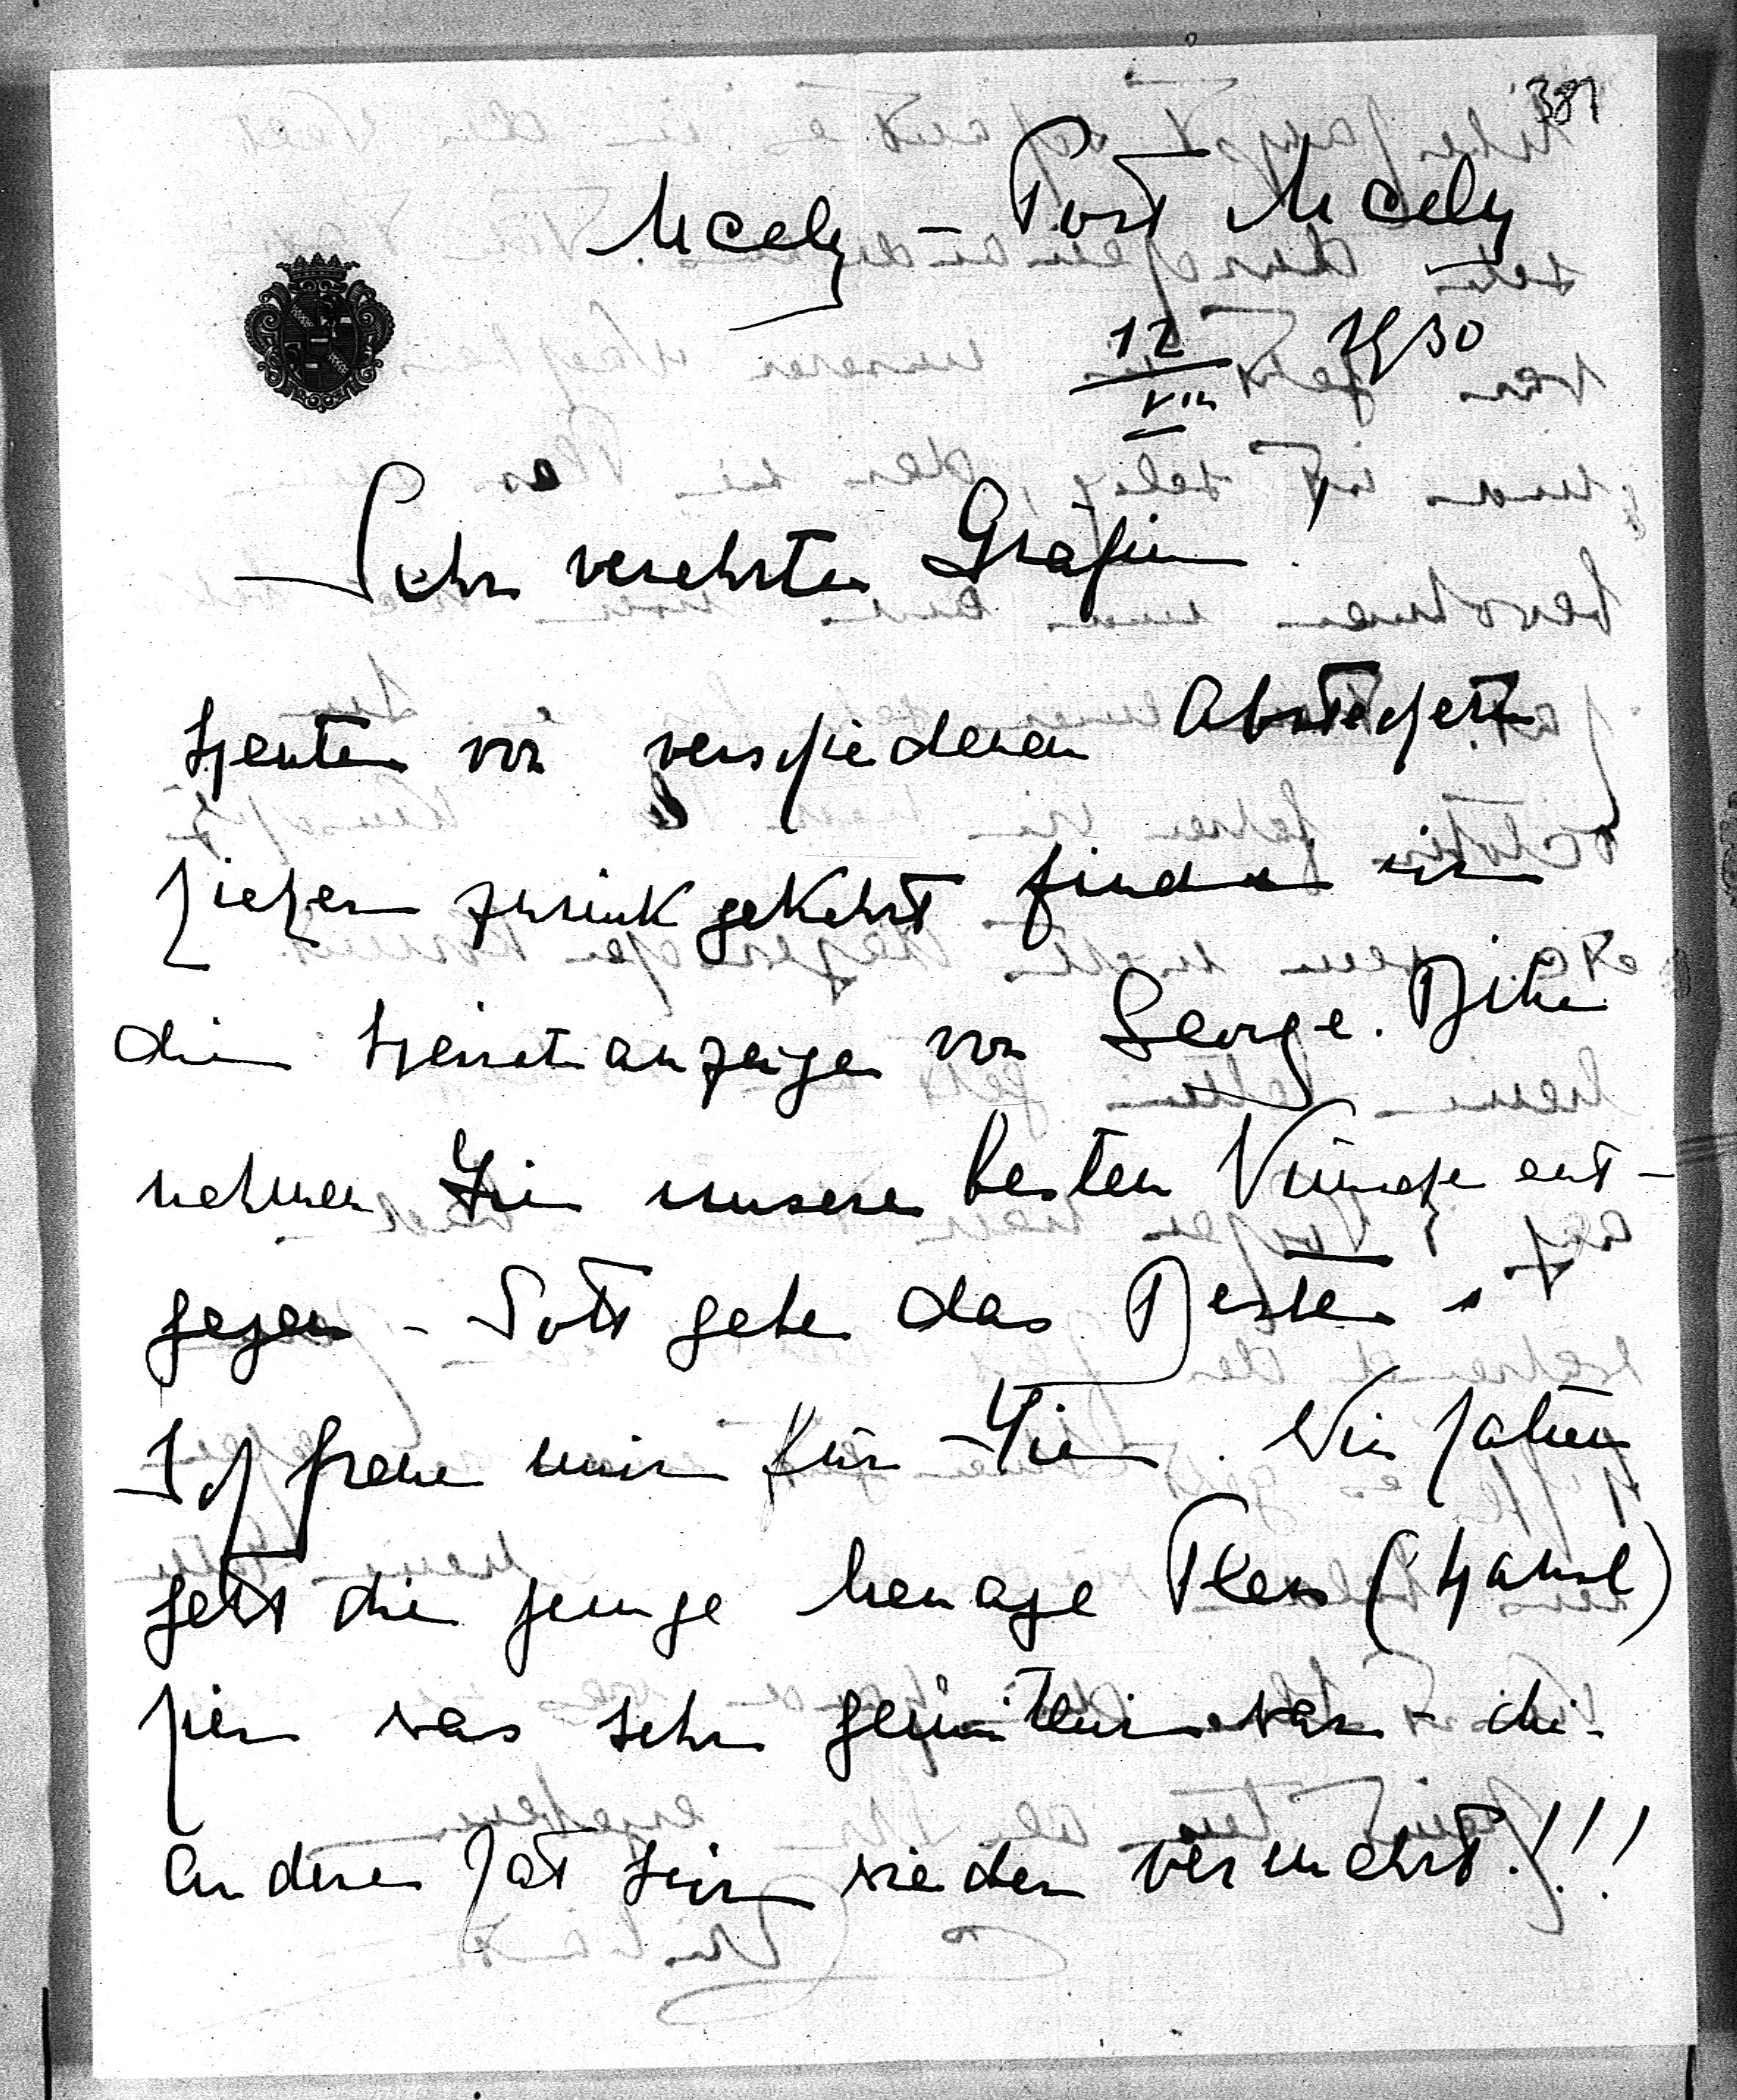 381
Mcely – Post Mcely
12/VIII 1930
Sehr verehrte Gräfin!
Heute von verschiedenen Abstechern
hieher zurück gekehrt finde ich
die Heiratsanzeige von George. Bitte
nehmen Sie unsere besten Wünsche ent-
gegen – Gott gebe das Beste
Ich freue mich für Sie. Wir hatten
jetzt die junge Menage Pless (Hansel)
hier was sehr gemütlich war – die
andere hat sich wieder vermehrt!!!